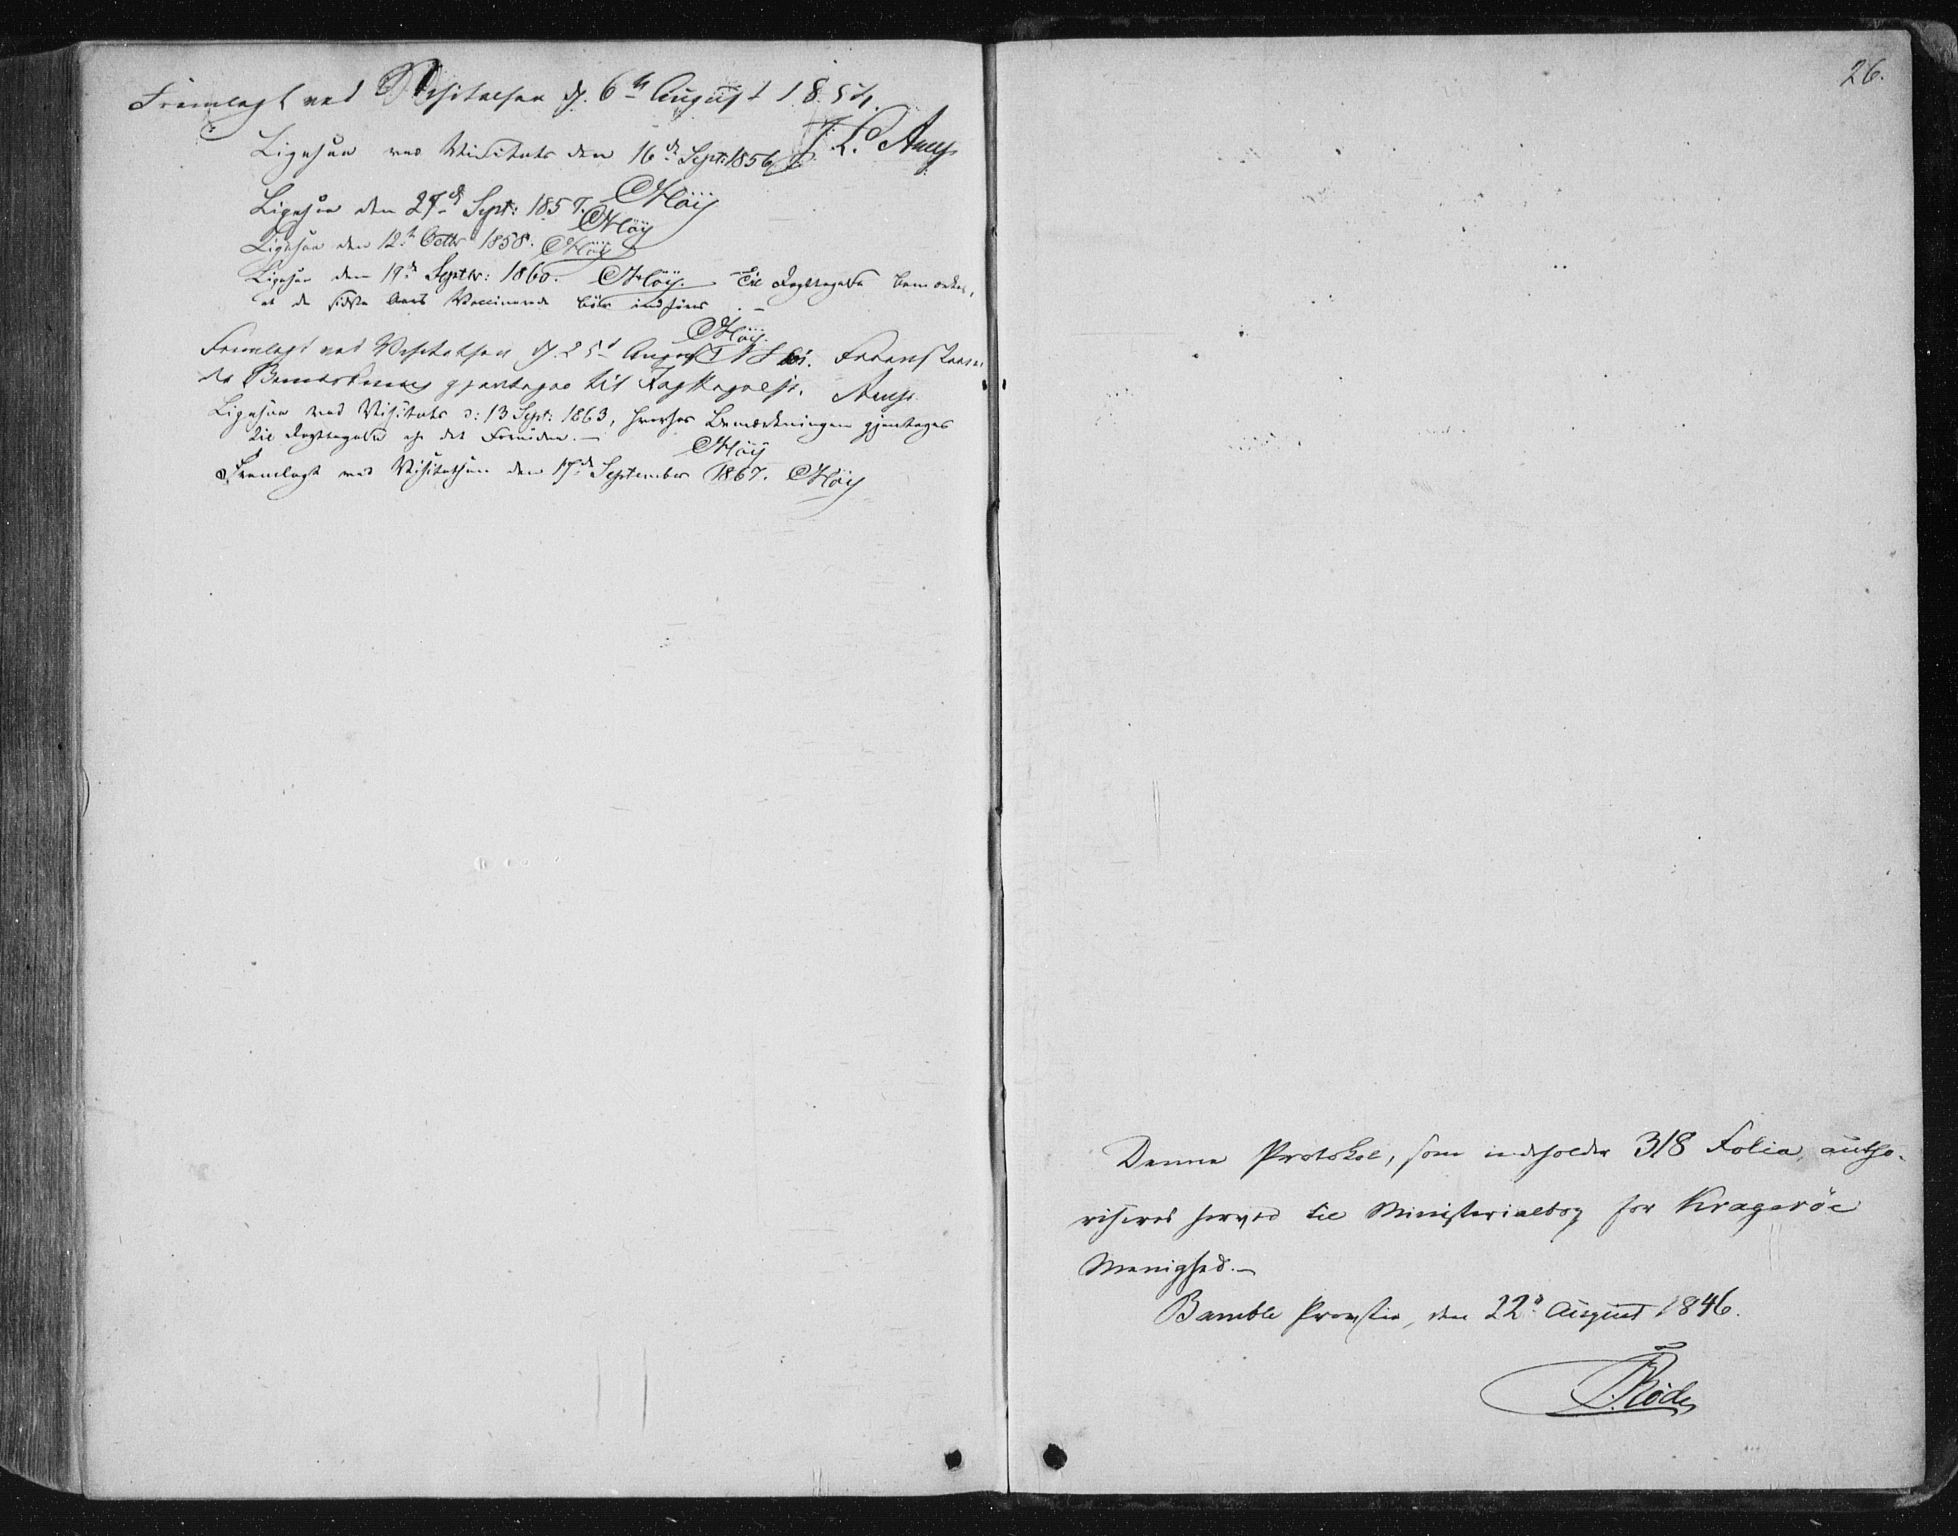 Fremlagt ved Visitatsen d. 6te August 1854.
J. L. Arup
Ligesaa ved Visitats den 16de Sept: 1856
Høÿ
Ligesaa den 27de Sept: 1857.
Høÿ
Ligesaa den 12te Octbr 1858. Høÿ
Ligesaa den 19de Septbr: 1860. Høÿ. Til Iagttagelse bemærkes,
at de sidste Aars Vaccinerede bør indføres. –
Høÿ.
Fremlagt ved Visitatsen d. 25d August 1861. Foranstaaen-
de Bemærkning gjentages til Iagttagelse. Arup.
Ligesaa ved Visitats d: 13 Sept: 1863, hvorhos Bemærkningen gjentages
til Iagttagelse for det Fremtiden. –
Høÿ
Fremlagt ved Visitatsen den 17de September 1867. Høÿ
26.
Denne Protokol, som indeholder 318 Folia, autho-
riseres herved til Ministerialbog for Kragerøe
Menighed. –
Bamble Provstie, den 22de August 1846.
Rode